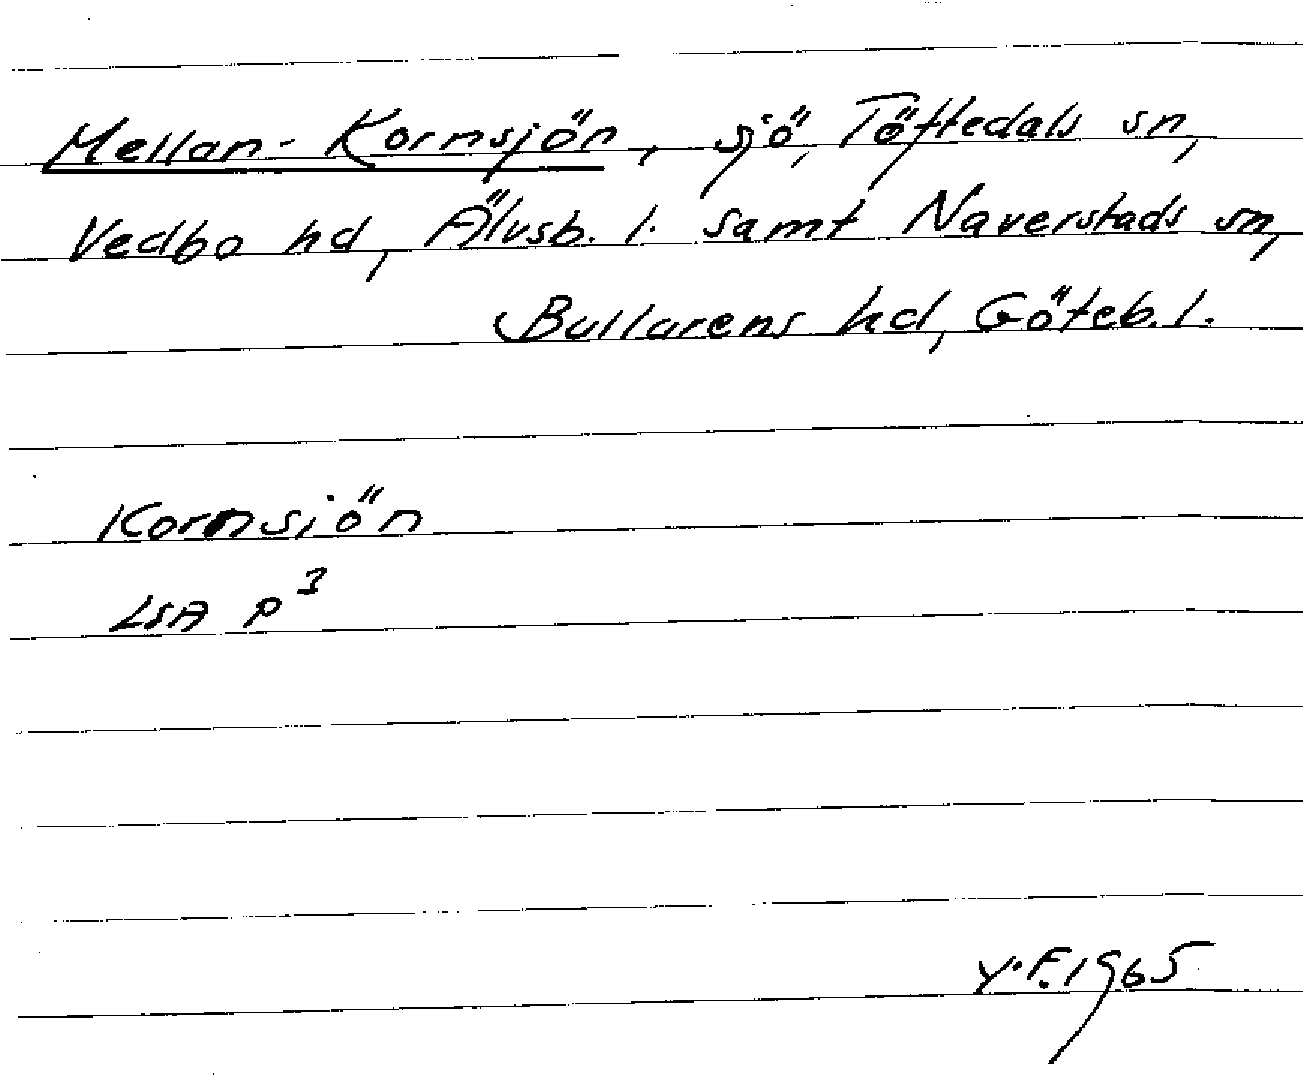 Mellan-Kornsjön, sjö, Töftedals sn,
Vedbo hd, Älvsb. l. samt Naverstads sn,
Bullarens hd, Göteb. l.
Kornsiön
LSA P³
Y.F. 1965